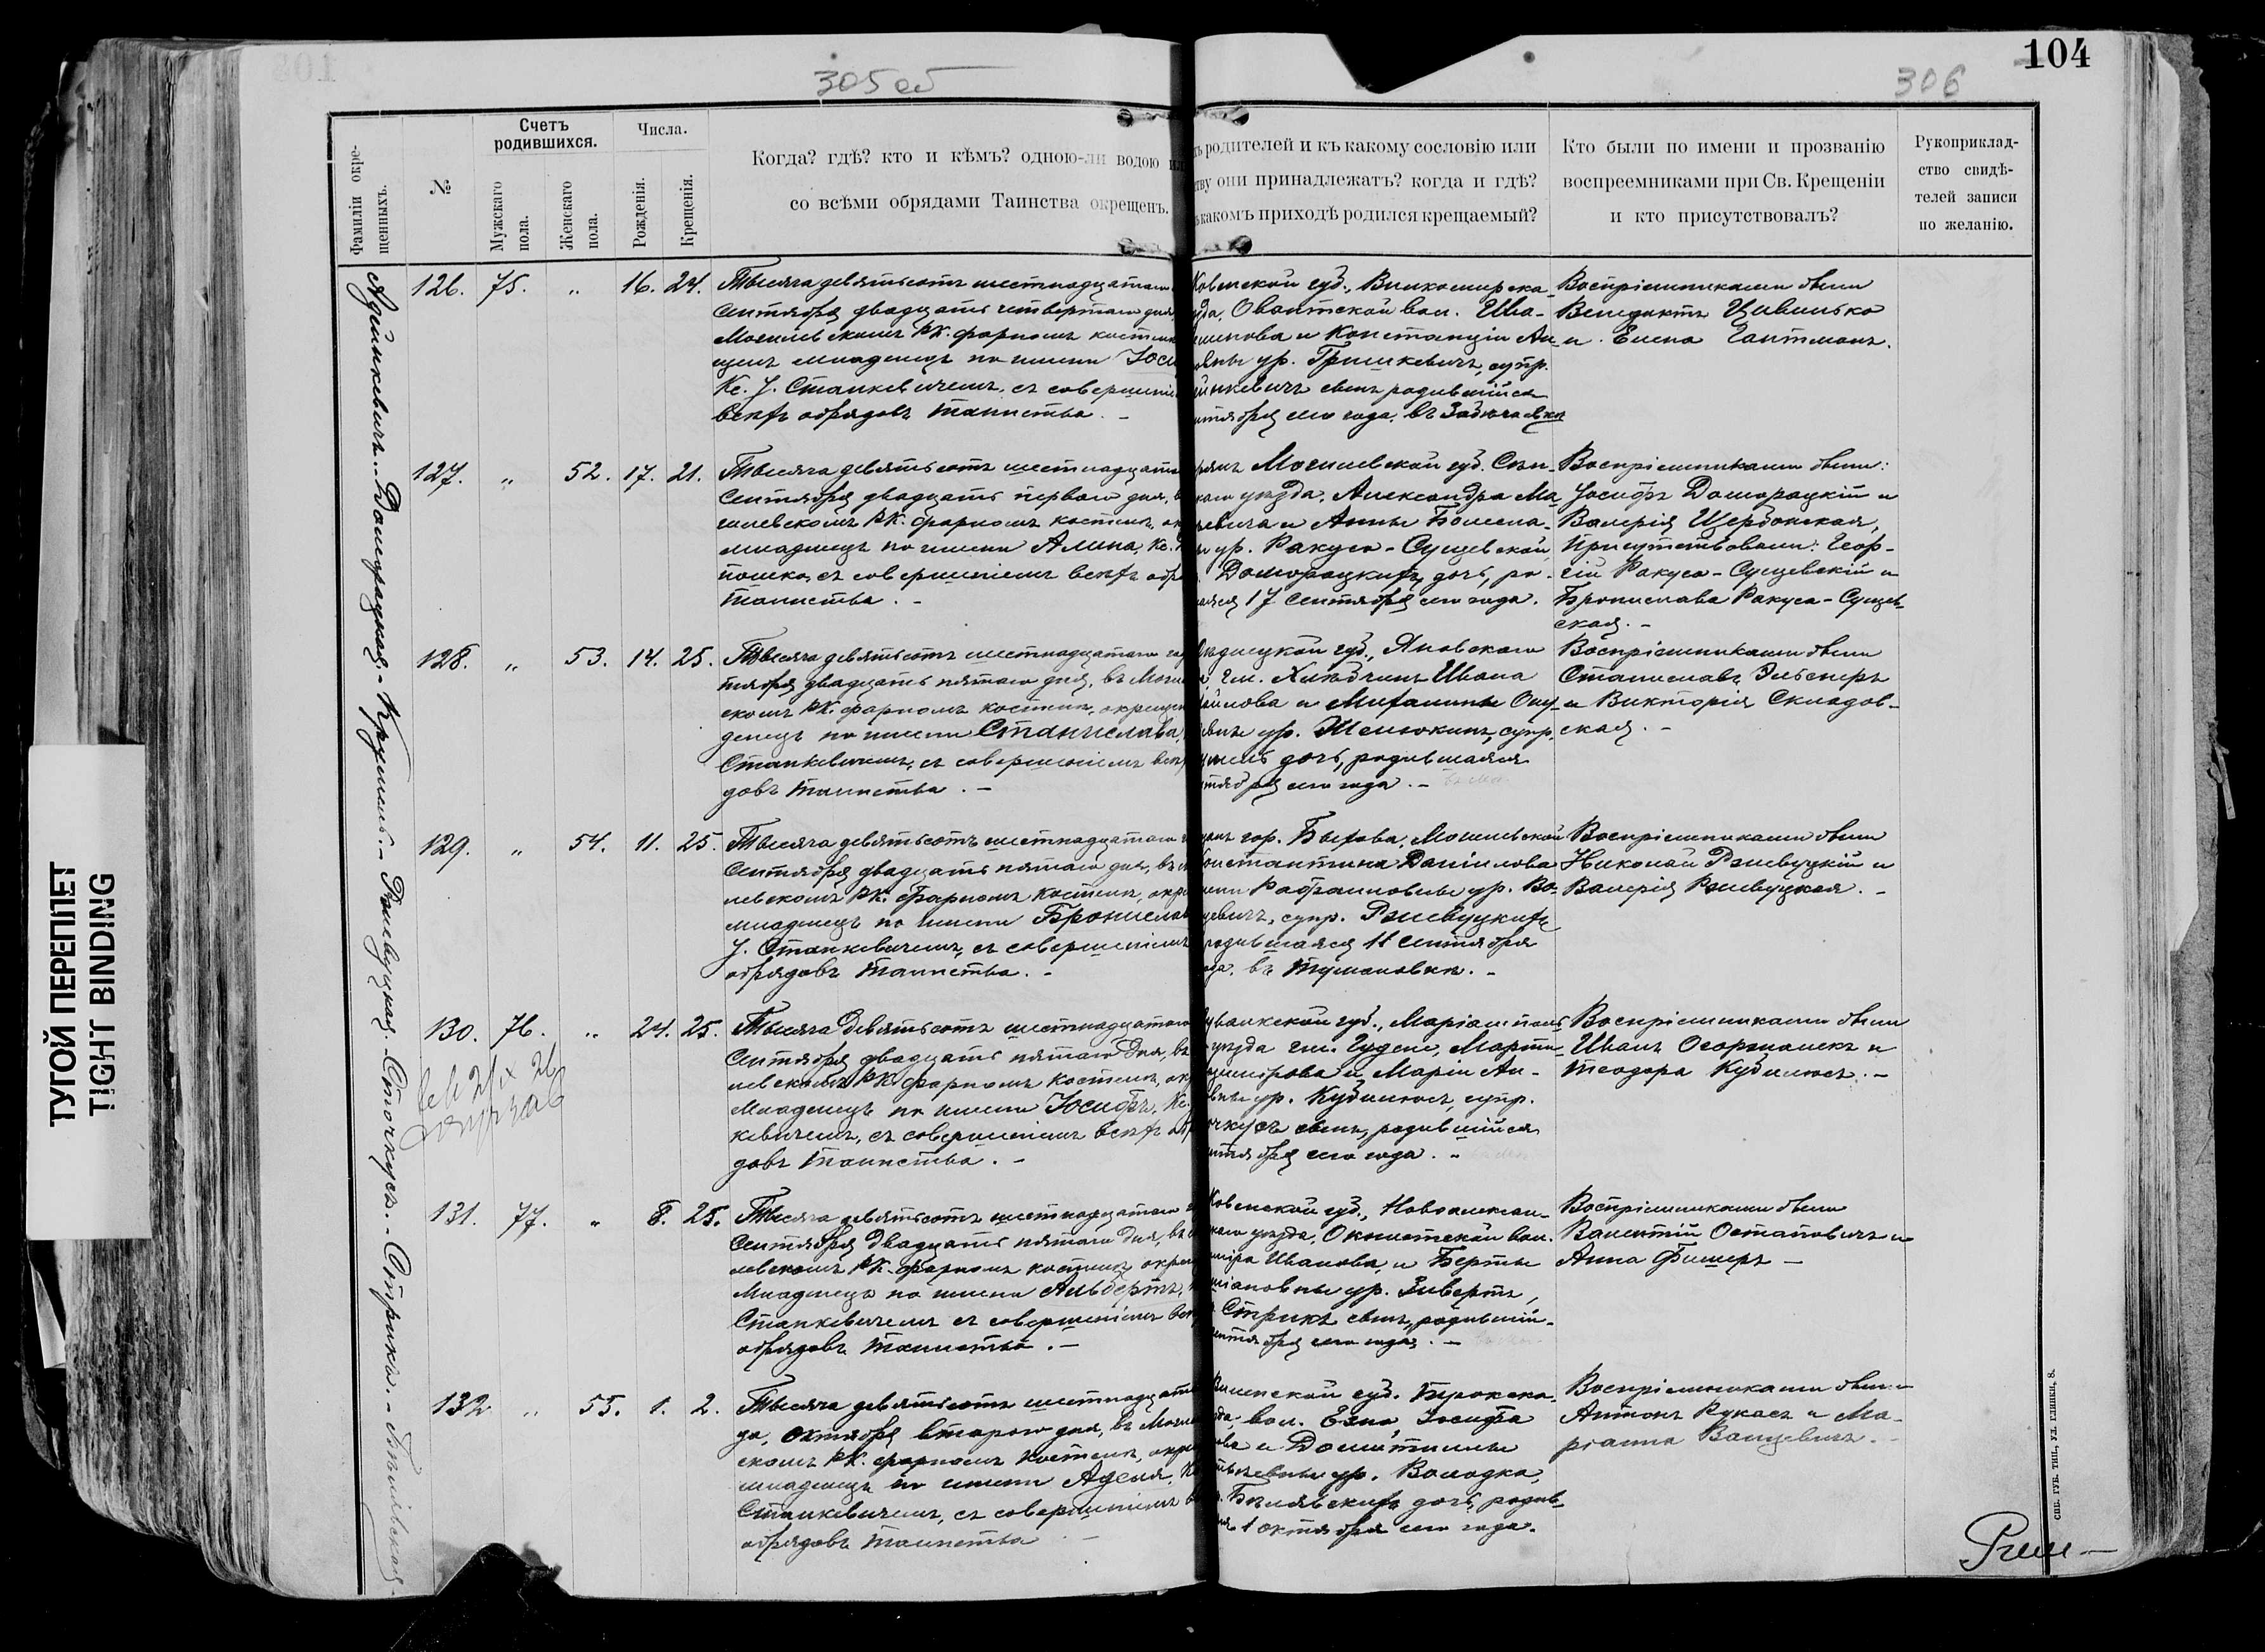 104
305 об
306
ТУГОЙ ПЕРЕПЛЕТ
TIGHT BINDING
Фамиліи окре-
щенныхъ.
№
Счетъ
родившихся.
Мужскаго
пола.
Женскаго
пола.
Числа.
Рожденія.
Крещенія.
Когда? гдѣ? кто и кѣмъ? одною-ли водою ил
со всѣми обрядами Таинства окрещенъ.
ъ родителей и къ какому сословію или
тву они принадлежатъ? когда и гдѣ?
ъ какомъ приходѣ родился крещаемый?
Кто были по имени и прозванію
воспреемниками при Св. Крещеніи
и кто присутствовалъ?
Рукоприклад-
ство свидѣ-
телей записи
по желанію.
126. 75. " 16. 24.
Тысяча девятьсотъ шестнадцатаго
Сентября двадцать четвертаго дня
Могилевскомъ РК. фарномъ костел
щенъ младенецъ по имени Юси
Кс. J. Станкевичемъ, съ совершеніе
всехъ обрядовъ таинства. –
Ковенской губ., Вилкомирска-
да, Овантской вол. Ива-
и Констанціи Ан-
ны ур. Гришкевичъ, супр.
инкевичъ сынъ, родившійся
нтября сего года, въ
Воспріемниками были
Венедиктъ Цивинько
и Елена Гантманъ.
127. " 52. 17. 21.
Тысяча девятьсотъ шестнадцата
Сентября двадцать перваго дня, в
гилевскомъ РК. фарномъ костелѣ, ок
младенецъ по имени Алина, Кс.
съ совершеніемъ всехъ обря
таинства. –
рянъ Могилевской губ. Сѣн-
каго уѣзда, Александра Ма-
евича и Анны Болесла-
ы ур. Ракуса-Сущевской,
Доморацкихъ дочь, ро-
аяся 17 Сентября сего года.
Воспріемниками были:
Іосифъ Доморацкій и
Валерія Щербонская,
Присутствовали: Геор-
гій Ракуса-Сущевскій и
Бронислава Ракуса-Сущев-
ская. –
128. " 53. 14. 25.
Тысяча девятьсотъ шестнадцатаго го
тября двадцать пятаго дня, въ Моги
скомъ РК. фарномъ костелѣ, окрещен
денецъ по имени Станислава,
Станкевичемъ, съ совершеніемъ всех
довъ таинства. –
губ., Яновскаго
гм. Ивана
йлова и Ону-
евны ур. супр.
дочь, родившаяся
нтября сего года. –
Воспріемниками были
Станиславъ Эльснеръ
и Викторія Складов-
ская. –
129. " 54. 11. 25.
Тысяча девятьсотъ шестнадцатаго г
Сентября двадцать пятаго дня, въ М
левскомъ РК. фарномъ костелѣ, окре
младенецъ по имени Бронислав
J. Станкевичемъ, съ совершеніемъ
обрядовъ таинства. –
анъ гор. Быхова, Могилевской
онстантина Данилова
Рафаиловны ур. Во-
цевичъ, супр. Ржевуцкихъ
родившаяся 11 сентября
ода, въ Тумановкѣ. –
Воспріемниками были
Николай Ржевуцкій и
Валерія Ржевуцкая. –
130. 76. " 24. 25.
Тысяча девятьсотъ шестнадцатаго
Сентября двадцать пятаго дня, въ
левскомъ РК. фарномъ костелѣ, ок
младенецъ по имени Юсифъ, Кс.
кевичемъ, съ совершеніемъ всехъ обр
довъ таинства. –
увалкской губ., Маріампол
уѣзда гм. Гуделе, Марти-
и Маріи Ан-
вны ур. Кубилюсъ, супр.
очкусъ сынъ, родившійся
нтября сего года. –
Воспріемниками были
Иванъ и
Теодора Кубилюсъ. –
131. 77. " 8. 25.
Тысяча девятьсотъ шестнадцатаго
Сентября двадцать пятаго дня, въ
левскомъ РК. фарномъ костелѣ, окре
младенецъ по имени Альбертъ,
Станкевичемъ съ совершеніемъ все
обрядовъ таинства. –
Ковенской губ., Новоалексан-
каго уѣзда, Окнистской вол.
Иванова и Берты
ановны ур. Зивертъ,
Стрикъ сынъ, родившій-
ентября сего года. –
Воспріемниками были
Валентій Остаповичъ и
Анна Фишеръ –
132. " 55. 1. 2.
Тысяча девятьсотъ шестнадцата
да, октября второго дня, въ Моги
скомъ РК. фарномъ костелѣ, окре
младенецъ по имени Аделя, Кс
Станкевичемъ, съ совершеніемъ в
обрядовъ таинства –
Виленской губ. Трокска-
да, вол. Езно Іосифа
ова и Домитиллы
ны ур. Володко,
Бѣлявскихъ дочь, родив-
1 октября сего года.
Воспріемниками были
Антонъ Рукасъ и Ма-
ріанна Ванцевичъ. –
Доморацкая. - Крумель. - Ржевуцкая. - Сточкусъ. - Стрикъ. - Бѣлявская -
СПБ. ГУБ. ТИП., УЛ. ГЛИНКИ, 8.